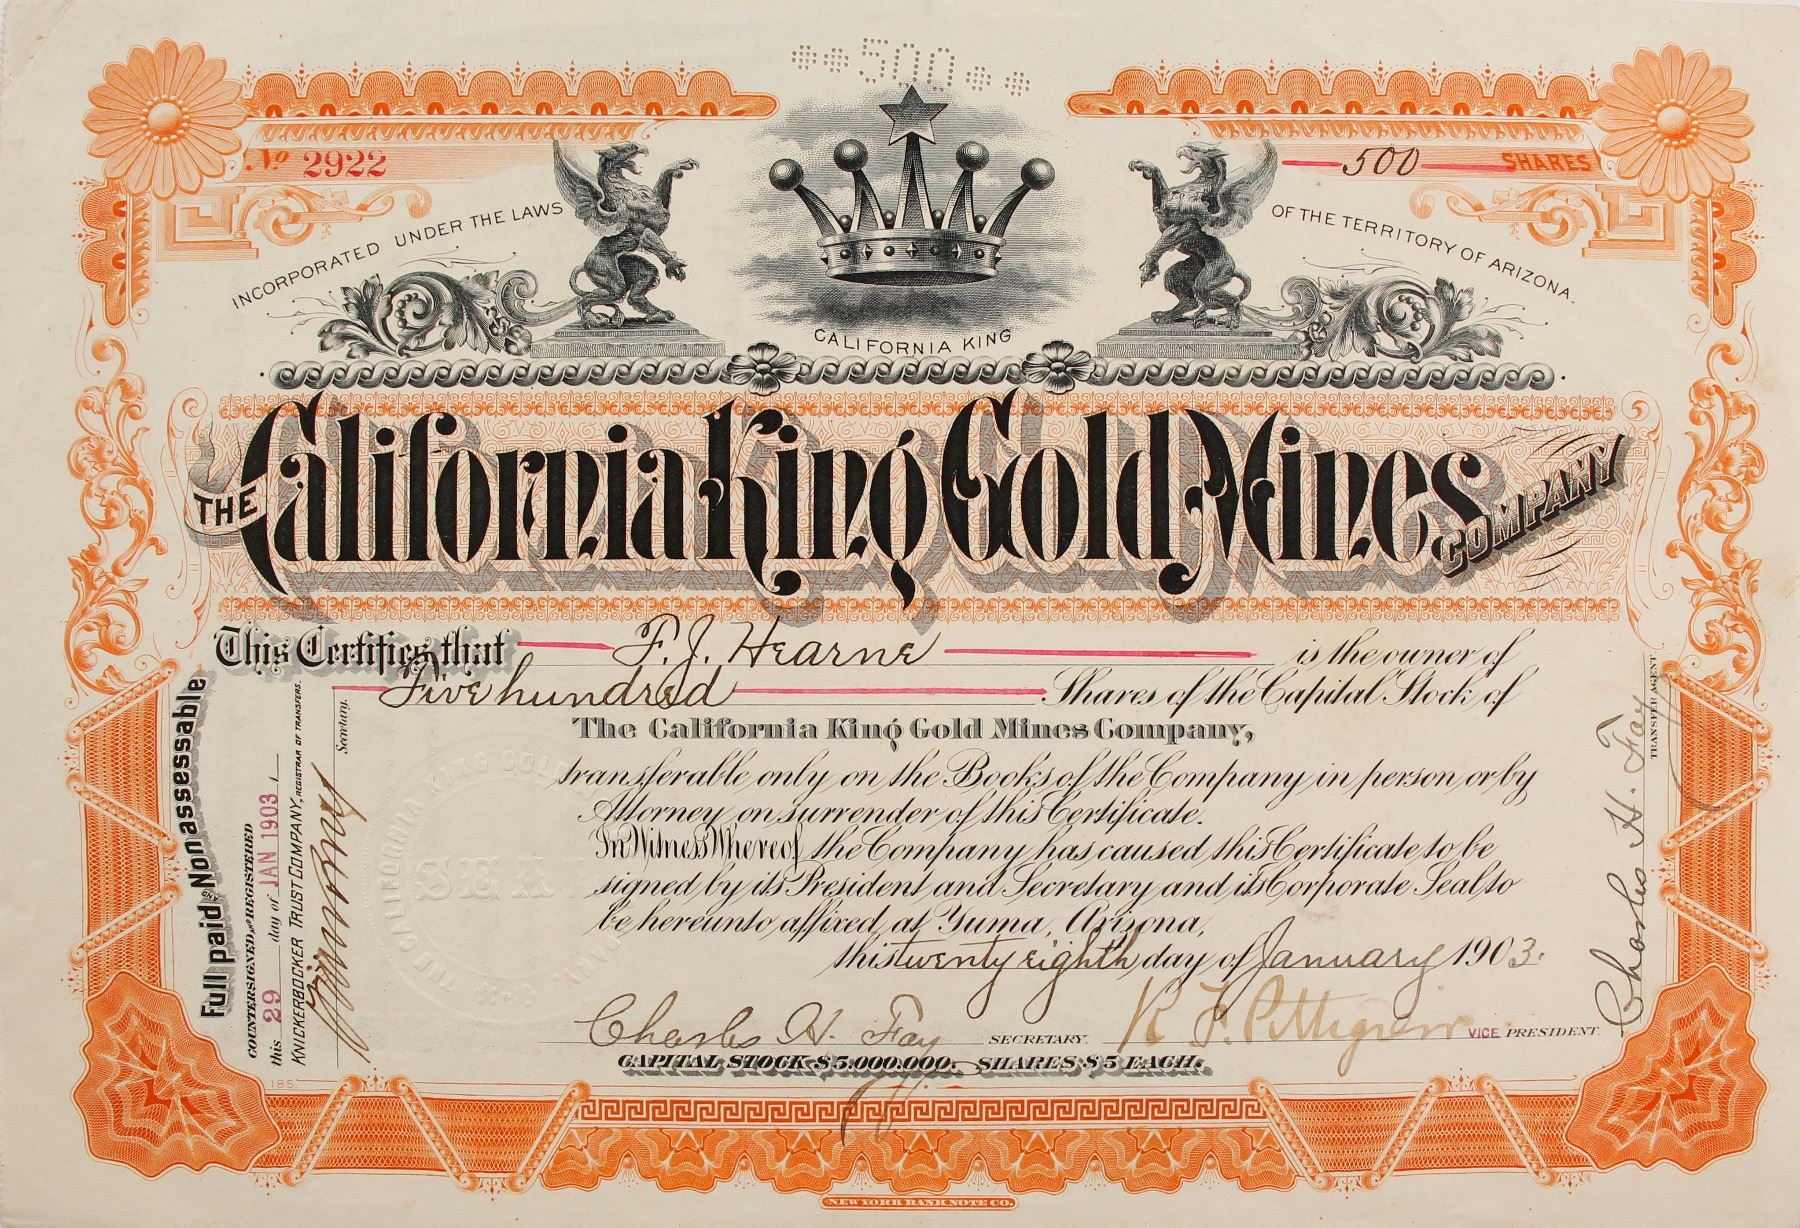 **500**
No 2922
500 SHARES
INCORPORATED UNDER THE LAWS OF THE TERRITORY OF ARIZONA.
CALIFORNIA KING
THE California King Gold Mines COMPANY
This Certifies that F. J. Hearne is the owner of
Five hundred Shares of the Capital Stock of
The California King Gold Mines Company,
transferable only on the Books of the Company in person or by
Attorney on surrender of this Certificate.
In Witness Whereof the Company has caused this Certificate to be
signed by its President and Secretary and its Corporate Seal to
be hereunto affixed, at Yuma, Arizona,
this twenty eighth day of January 1903.
Charles H. Fay SECRETARY. R F. Pettigrew VICE PRESIDENT.
CAPITAL STOCK $5.000.000. SHARES $5 EACH.
Full paid & Nonassessable
COUNTERSIGNED AND REGISTERED
this 29 day of JAN 1903
KNICKERBOCKER TRUST COMPANY, REGISTRAR OF TRANSFERS.
Secretary.
Charles H. Fay
TRANSFER AGENT
THE CALIFORNIA KING GOLD
185
NEW YORK BANK NOTE CO.